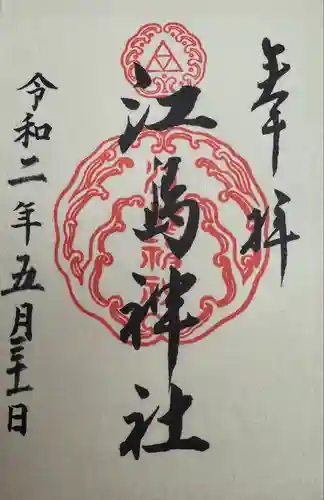 奉拝
江島神社
令和二年五月三十一日